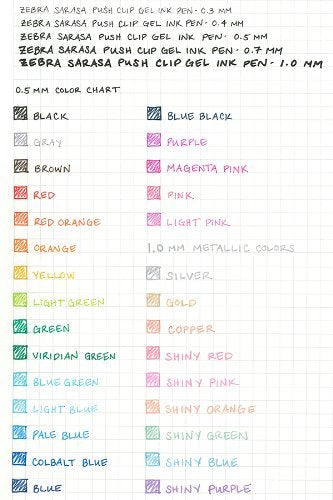 ZEBRA SARASA PUSH CLIP GEL INK PEN - 0.3 MM
ZEBRA SARASA PUSH CLIP GEL INK PEN - 0.4 MM
ZEBRA SARASA PUSH CLIP GEL INK PEN - 0.5 MM
ZEBRA SARASA PUSH CLIP GEL INK PEN - 0.7 MM
ZEBRA SARASA PUSH CLIP GEL INK PEN - 1.0 MM
0.5 MM COLOR CHART
BLACK
GRAY
BROWN
RED
RED ORANGE
ORANGE
YELLOW
LIGHT GREEN
GREEN
VIRIDIAN GREEN
BLUE GREEN
LIGHT BLUE
PALE BLUE
COLBALT BLUE
BLUE
BLUE BLACK
PURPLE
MAGENTA PINK
PINK
LIGHT PINK
1.0 MM METALLIC COLORS
SILVER
GOLD
COPPER
SHINY RED
SHINY PINK
SHINY ORANGE
SHINY GREEN
SHINY BLUE
SHINY PURPLE